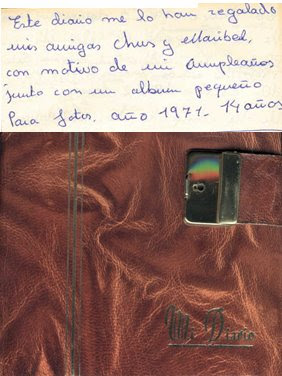 Este diario me lo han regalado
mis amigas Chus y Maribel,
con motivo de mi cumpleaños
junto con un album pequeño
Para fotos. año 1971. 14 años
Mi Diario